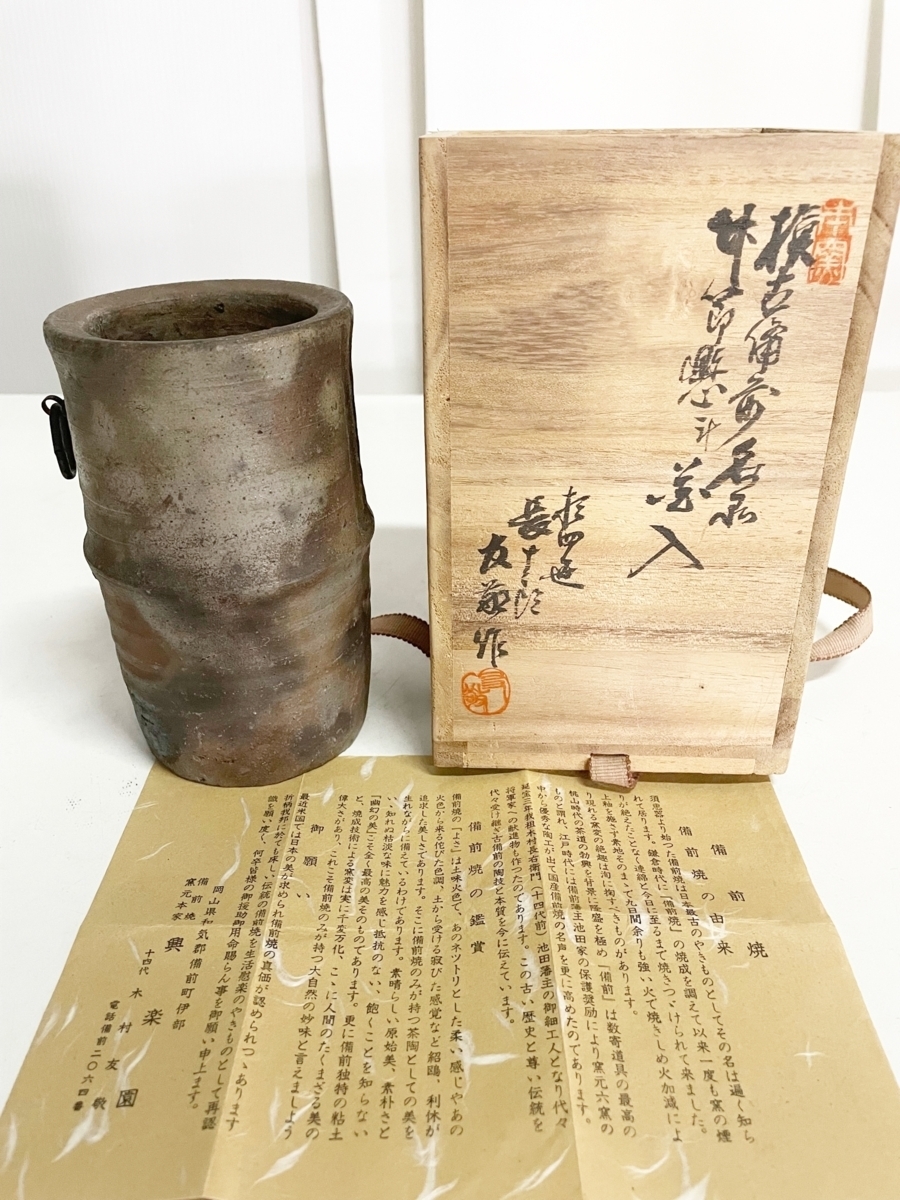 入
友敬作
備前焼
備前焼の由来
須恵器より始つた備前焼は日本最古のやきものとしてその名は遍く知ら
れて居ります。鎌倉時代に「備前焼」の焼成を調えて以来一度も窯の煙
りが絶えたことなく連綿と今日に至るまで焼きつゞけられて来ました。
上釉を施さず素地そのまゝで九日間余りも強い火で焼きしめ火加減によ
り現れる窯変の絶趣は洵に掬すべきものがあります。
桃山時代の茶道の勃興を背景に隆盛を極め「備前」は数寄道具の最高の
ものと謂れ、江戸時代には備前藩主池田家の保護奨励により窯元六窯の
中から優秀な陶工が出て国産備前焼の名声を更に高めたのであります。
延宝三年我祖木村長右衛門（十四代前）池田藩主の御細工人となり代々
将軍家への献進物も作つたのであります。この古い歴史と尊い伝統を
代々受け継ぎ古備前の陶技と本質を今に伝えています。
備前焼の鑑賞
備前焼の「よさ」は土味火色で、あのネツトリとした柔い感じやあの
火色から来る侘びた色調、土から受ける寂びた感覚など紹鴎、利休が
追求した美しさであります。そこに備前焼のみが持つ茶陶としての美を
生れながらに備えているわけであります。素晴らしい原始美、素朴さと
いゝ知れぬ枯淡な味に魅力を感じ抵抗のない、飽くことを知らない
「幽幻の美」こそ全く最高の美そのものであります。更に備前独特の粘土
と、焼成技術による窯変は実に千変万化、こゝに人間のたくまざる美の
偉大さがあり、これこそ備前焼のみが持つ大自然の妙味と言えましよう
御願い
最近米国では日本の美が求められ備前焼の真価が認められつゝあります
折柄我邦に於ても床しい伝統の備前焼を生活慰楽のやきものとして再認
識を願い度く、何卒皆様の御援助御用命賜らん事を御願い申上ます。
岡山県和気郡備前町伊部
備前焼窯元本家 興楽園
十四代 木村友敬
電話備前二〇六四番